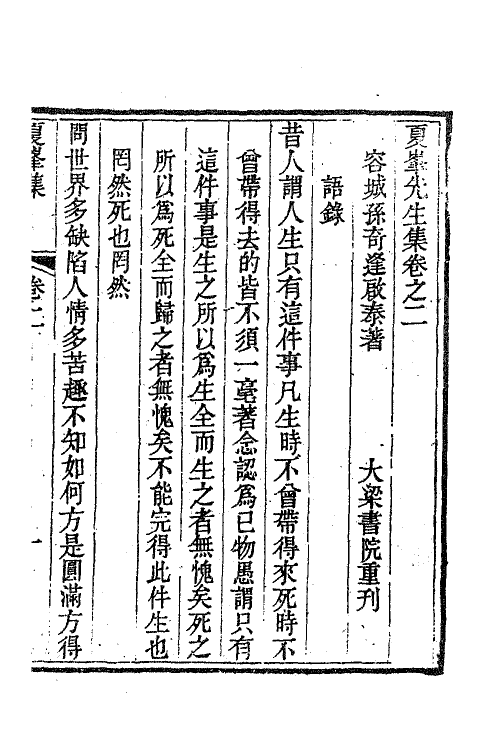 夏峯先生集卷之二
容城孫奇逢啟泰著　大梁書院重刊
語錄
昔人謂人生只有這件事凡生時不曾帶得來死時不
曾帶得去的皆不須一毫著念認爲已物愚謂只有
這件事是生之所以爲生全而生之者無愧矣死之
所以爲死全而歸之者無愧矣不能完得此件生也
罔然死也罔然
問世界多缺陷人情多苦趣不知如何方是圓滿方得
夏峯集　卷二　一